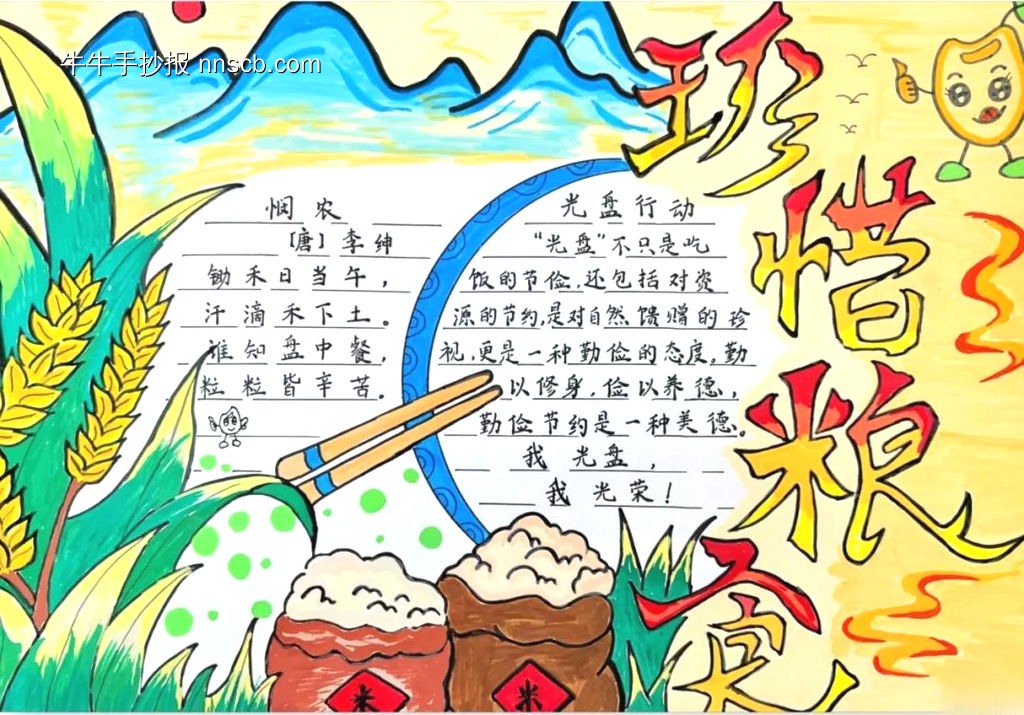 牛牛手抄报 nnscb.com
珍惜粮食
悯农
【唐】李绅
锄禾日当午,
汗滴禾下土。
谁知盘中餐,
粒粒皆辛苦。
光盘行动
“光盘”不只是吃
饭的节俭,还包括对资
源的节约,是对自然馈赠的珍
视,更是一种勤俭的态度,勤
以修身,俭以养德,
勤俭节约是一种美德。
我光盘,
我光荣!
米
米